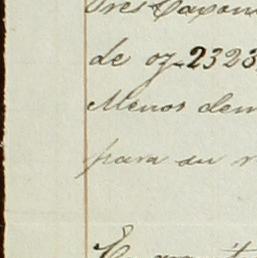 Tres Caxon
de oz. 2323
Menos dem
para su r